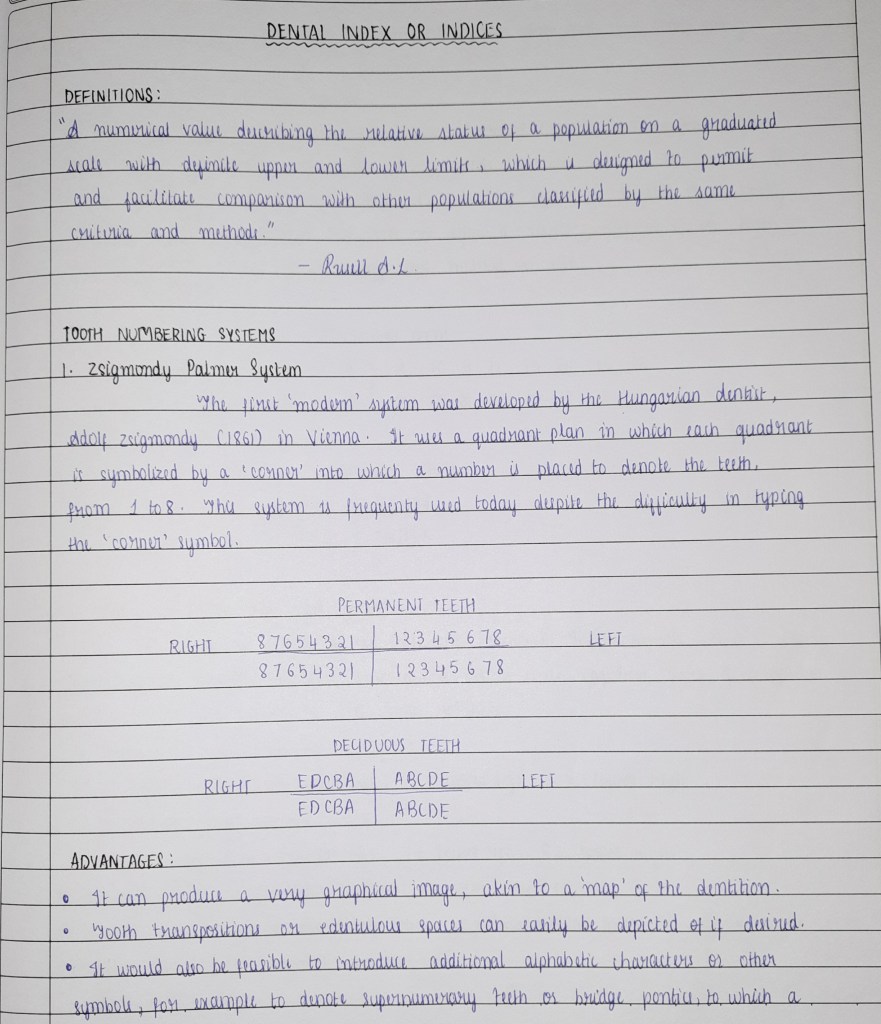 DENTAL INDEX OR INDICES
DEFINITIONS:
"A numerical value describing the relative status of a population on a graduated
scale with definite upper and lower limits, which is designed to permit
and facilitate comparison with other populations classified by the same
criteria and methods."
- Russell A.L
TOOTH NUMBERING SYSTEMS
1. Zsigmondy Palmer System
The first 'modern' system was developed by the Hungarian dentist,
Adolf Zsigmondy (1861) in Vienna. It uses a quadrant plan in which each quadrant
is symbolized by a 'corner' into which a number is placed to denote the teeth,
from 1 to 8. This system is frequenty used today despite the difficulty in typing
the 'corner' symbol.
PERMANENT TEETH
RIGHT 87654321 | 12345678 LEFT
87654321 | 12345678
DECIDUOUS TEETH
RIGHT EDCBA | ABCDE LEFT
EDCBA | ABCDE
ADVANTAGES:
• It can produce a very graphical image, akin to a 'map' of the dentition.
• Tooth transpositions or edentulous spaces can easily be depicted of if desired.
• It would also be feasible to introduce additional alphabetic characters or other
symbols, for example to denote supernumerary teeth or bridge pontics, to which a